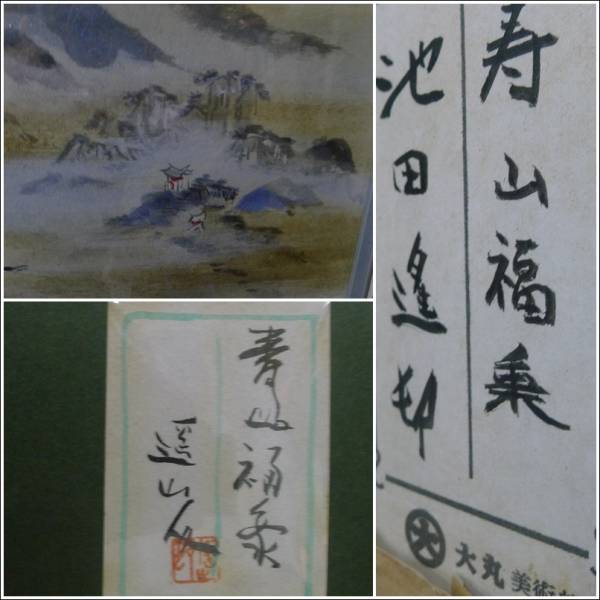 寿山福乗
池田遙邨
大丸 美術
寿山福乗
遙山人